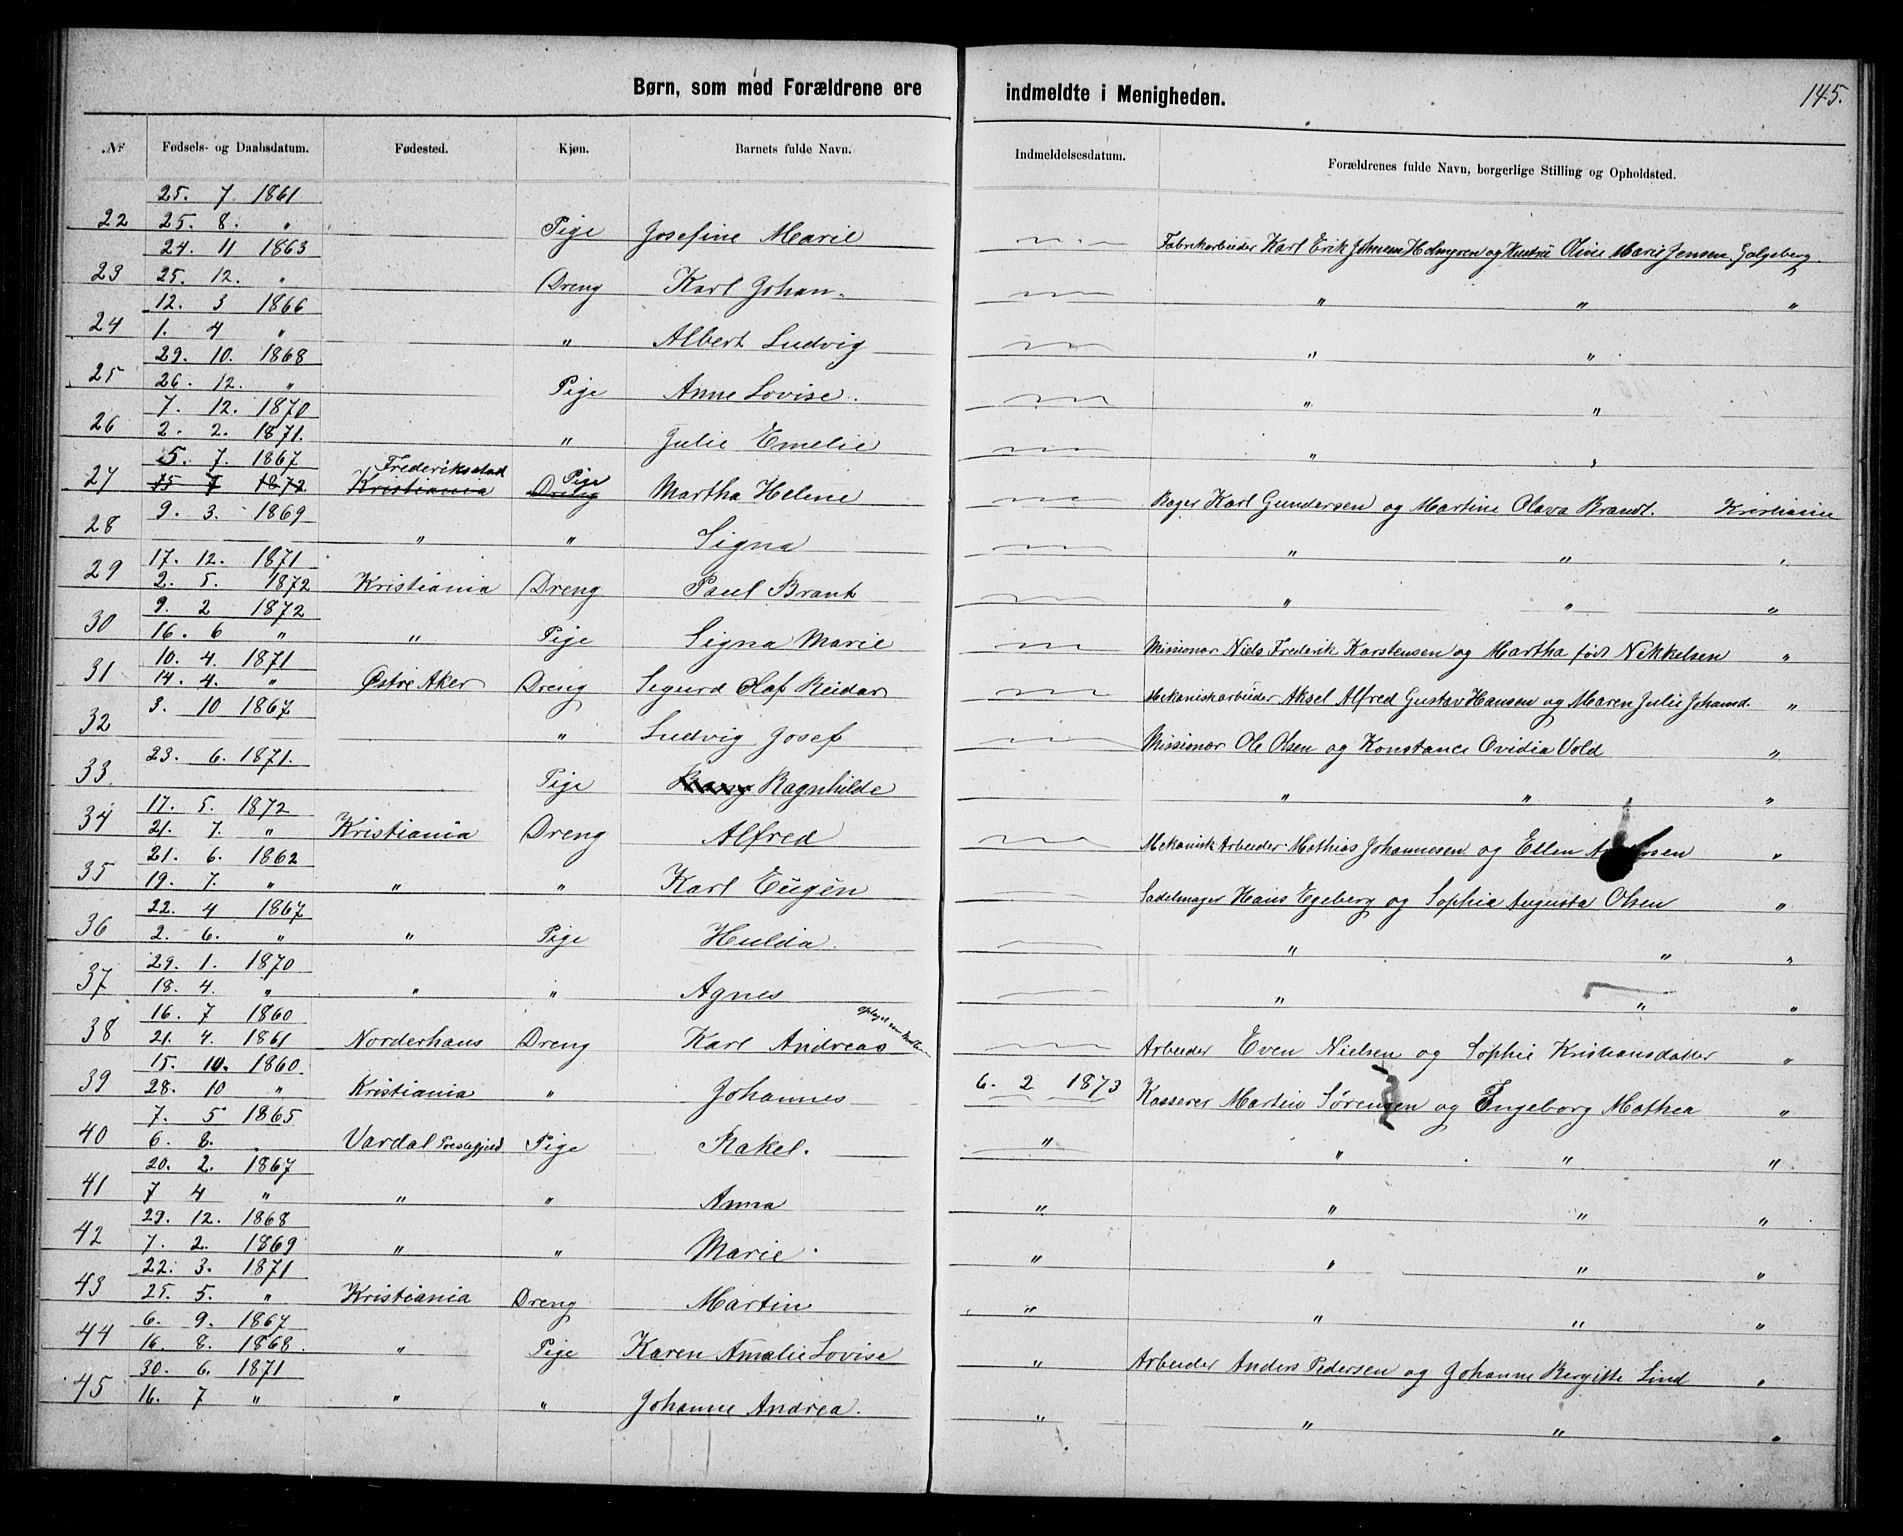 Børn, som med Forældrene ere indmeldte i Menigheden. 145.
№ Fødsels- og Daabsdatum. Fødested. Kjøn. Barnets fulde Navn. Indmeldelsesdatum. Forældrenes fulde Navn, borgerlige Stilling og Opholdsted.
25. 7 1861
22 25. 8. " Pige Josefine Marie Fabrikarbeider Karl Erik Johnsen Holmgren og Hustru Oline Marie Jensen Galgeberg
24. 11 1863
23 25. 12. " Dreng Karl Johan. " " "
12. 3 1866
24 1. 4 " " Albert Ludvig " "
29. 10. 1868
25 26. 12. " Pige Anne Lovise. " "
7. 12. 1870
26 2. 2. 1871. " Julie Emelie " "
5. 7. 1867 Frederiksstad Pige
27 15 7 1872 Kristiania Dreng Martha Helene Bager Karl Gundersen og Martine Olava Brandt. Kristiania
9. 3. 1869
28 " " Signa " " "
17. 12. 1871
29 2. 5. 1872 Kristiania Dreng Paul Brant " " "
9. 2 1872
30 16. 6 " " Pige Signa Marie Missionær Niels Frederik Karstensen og Martha født Nikkelsen "
10. 4. 1871
31 14. 4. " Østre Aker Dreng Sigurd Olaf Reidar Mekaniskarbeider Aksel Alfred Gustav Hansen og Maren Julie Johansd. "
3. 10 1867
32 " Ludvig Josef Missionær Ole Olsen og Konstance Ovidia Vold "
23. 6. 1871.
33. Pige Ragnhilde " " "
17. 5. 1872
34 21. 7. " Kristiania Dreng Alfred Mekanisk Arbeider Mathias Johannesen og Ellen "
21. 6. 1862
35 19. 7. " " " Karl Eugén Sadelmager Hans Egeberg og Sophie Augusta Olsen "
22. 4 1867
36 2. 6. " " Pige Hulda. " " "
29. 1. 1870
37 18. 4. " " " Agnes " " "
16. 7 1860
38 21. 4. 1861 Norderhaus Dreng Karl Andreas Arbeider Even Nielsen og Sophie Kristiansdatter "
15. 10. 1860
39 28. 10 " Kristiania " Johannes 6. 2 1873 Kasserer Martin Sørensen og Engeborg Mathea "
7. 5 1865
40 6. 8. " Vardal Præstegjeld Pige Rakel. " " " "
20. 2. 1867
41 7 4 " " " Anna " " " "
29. 12. 1868
42 7. 2. 1869 " " Marie. " " " "
22. 3. 1871
43 25. 5. " Kristiania Dreng Martin " " " "
6. 9. 1867
44 16. 8. 1868. " Pige Karen Amalie Lovise " Arbeider Anders Pedersen og Johanne Bergitte Lind "
30. 6. 1871
45 16. 7 " " " Johanne Andrea. " " " "